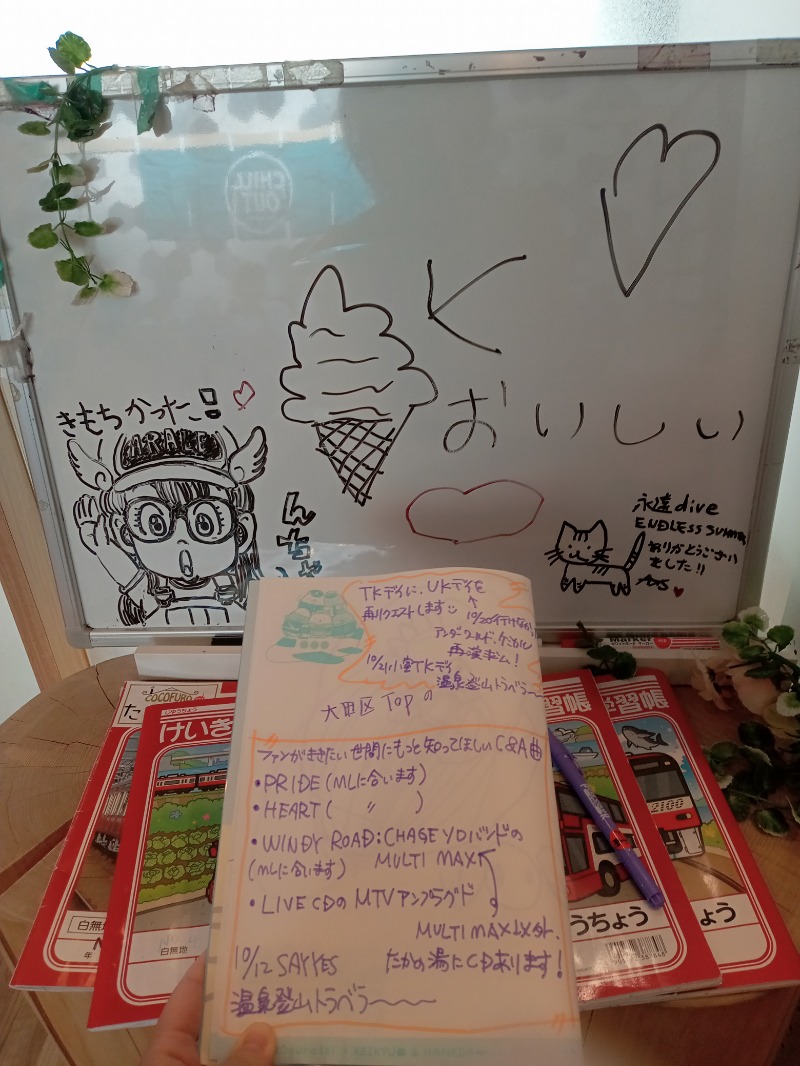 CHILL
OUT
K
おいしい
きもちかった!!
ARALE
んちゃ
永遠dive
ENDLESS SUMMER
ありがとうござい
ました!!
TKデイに、UKデイを
再リクエストします
10/20行けない
アンダーワールド、ケミカル
再演キボム!
10/21小室TKデイ
温泉登山トラベラ〜〜
大田区Topの
ファンがききたい世間にもっと知ってほしいC&A曲
・PRIDE(MLに合います)
・HEART( 〃 )
・WINDY ROAD:CHAGE YDバンドの
(MLに合います) MULTI MAX
・LIVE CDのMTVアンプラグド
MULTI MAX以外、
10/12 SAY YES たかの湯にCDあります!
温泉登山トラベラ〜〜〜
COCOFURO
た
じゆうちょう
けいき
白無地
白無地
習帳
学習帳
2100
うちょう
ょう
Marker